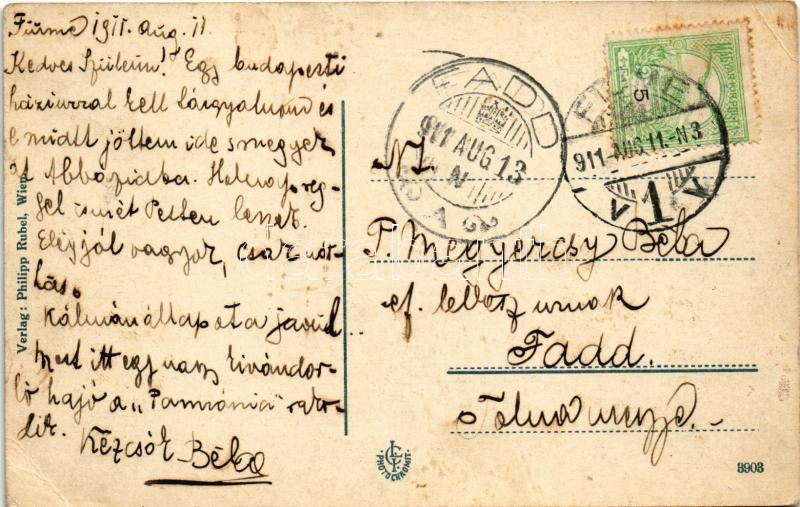 Fiume 1911. aug. 11.
Kedves Szüleim! Egy budapesti
háziurral kell tárgyalnom és
e miatt jöttem ide s megyek
át Abbáziába. Holnap reg-
gel ismét Pesten leszek.
Elég jól vagyok, csak
Kálmán állapota javul
Mert itt egy nagy kivándor-
ló hajó a „Pannónia" rako-
dik.
Kézcsók Béla
Verlag: Philipp Rubel, Wien.
FADD
911 AUG 13
FIUME
911 AUG 11.-N3
V 1 V
5
Nt.
T. Megyercsy Béla
ef. lelkész urnak
Fadd.
Tolna megye.
PHOTOCHROMIE.
3903
darabanth.com